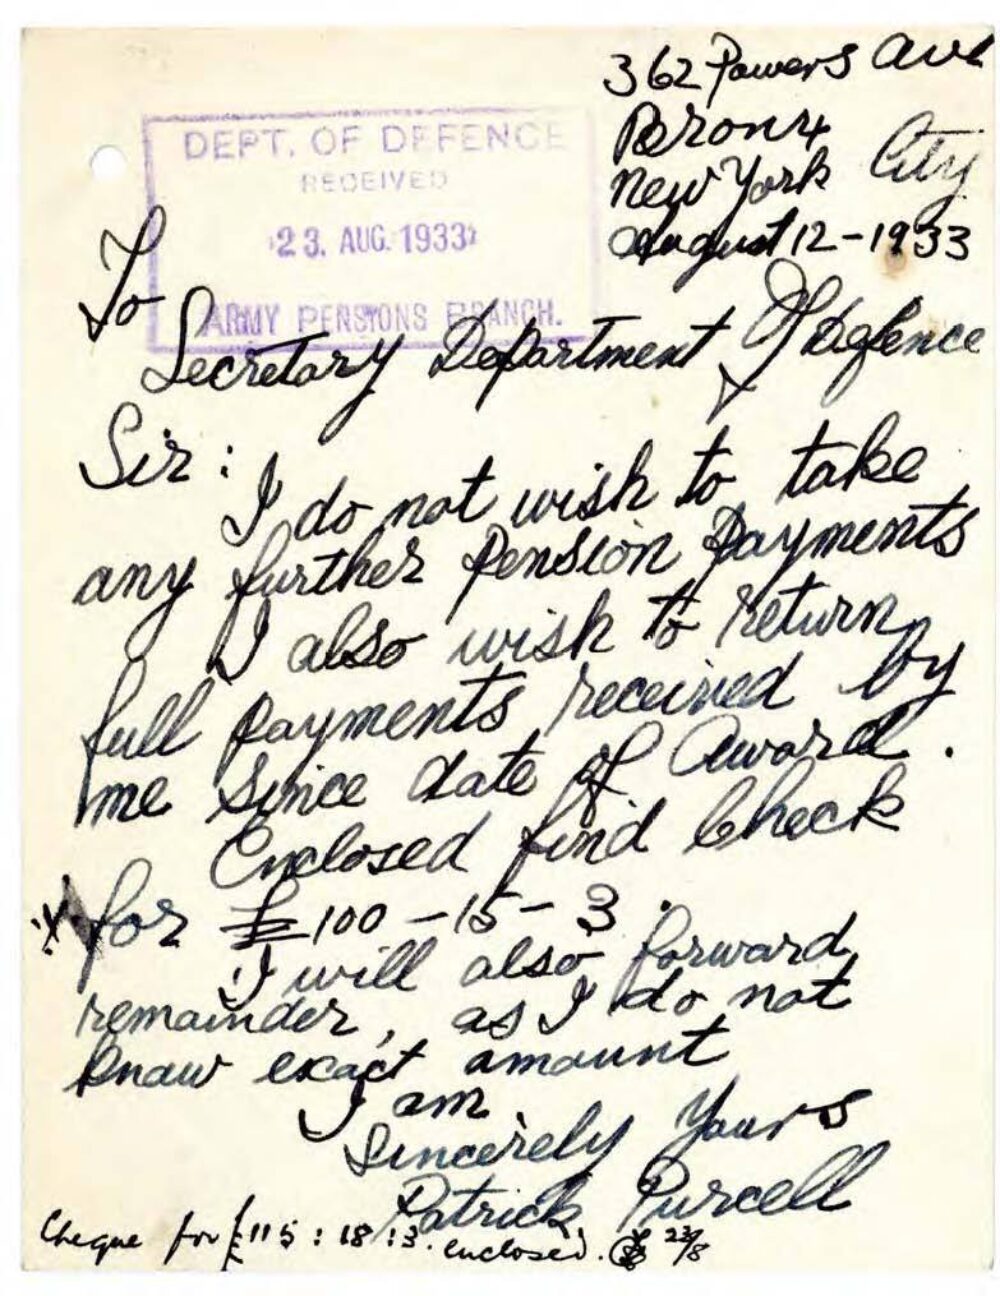 362 Powers Ave
Bronx
New York City
August 12-1933
DEPT. OF DEFENCE
RECEIVED
23. AUG. 1933
ARMY PENSIONS BRANCH.
To
Secretary Department Of Defence
Sir:
I do not wish to take
any further Pension Payments
I also wish to return
full payments received by
me since date of Award.
Enclosed find Check
for £100-15-3.
I will also forward
remainder, as I do not
know exact amount
I am
Sincerely Yours
Patrick Purcell
Cheque for £115:18:3. enclosed. 23/8